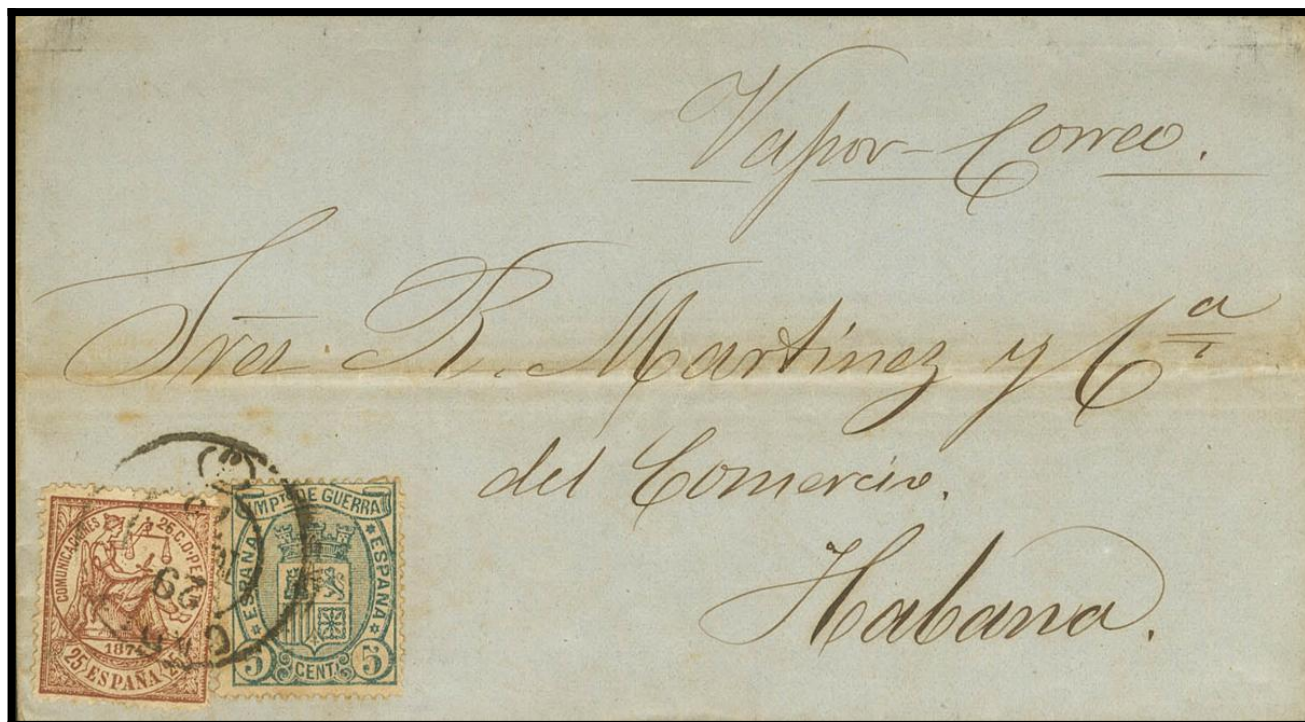 Vapor-Correo.
Sres. R. Martinez y Cª
del Comercio.
Habana.
COMUNICACIONES
1874
25 ESPAÑA 25
IMPTO DE GUERRA
ESPAÑA
ESPAÑA
5 CENT. 5
29